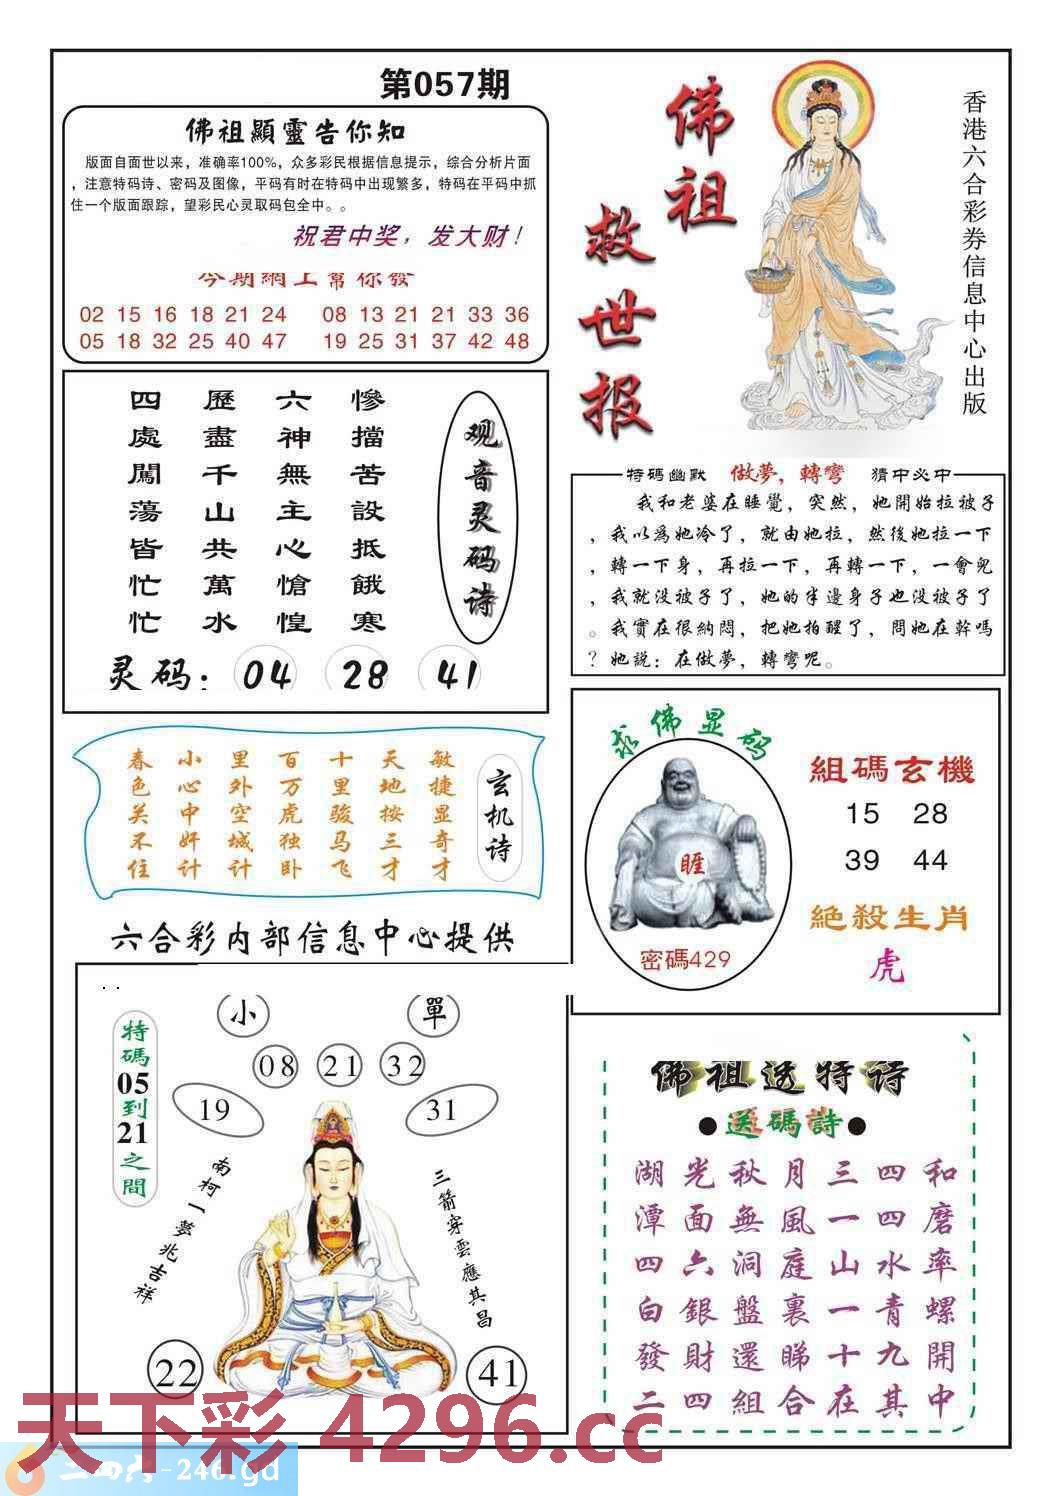 第057期
佛祖顯靈告你知
版面自面世以来，准确率100%，众多彩民根据信息提示，综合分析片面
，注意特码诗、密码及图像，平码有时在特码中出现繁多，特码在平码中抓
住一个版面跟踪，望彩民心灵取码包全中。。
祝君中奖，发大财！
今期網上幫你發
02 15 16 18 21 24 08 13 21 21 33 36
05 18 32 25 40 47 19 25 31 37 42 48
佛祖救世报
香港六合彩券信息中心出版
观音灵码诗
慘擋苦設抵餓寒
六神無主心愴惶
歷盡千山共萬水
四處闖蕩皆忙忙
灵码：04 28 41
特碼幽默 做夢，轉彎 猜中必中
我和老婆在睡覺，突然，她開始拉被子
，我以爲她冷了，就由她拉，然後她拉一下
，轉一下身，再拉一下，再轉一下，一會兒
，我就没被子了，她的半邊身子也没被子了
。我實在很納悶，把她拍醒了，問她在幹嗎
？她説：在做夢，轉彎呢。
玄机诗
敏捷显奇才
天地按三才
十里骏马飞
百万虎独卧
里外空城计
小心中奸计
春色关不住
求佛显码
睚
密碼429
組碼玄機
15 28
39 44
絕殺生肖
虎
六合彩内部信息中心提供
小 單
08 21 32
19 31
特碼05到21之間
南柯一夢兆吉祥
三箭穿雲應其昌
22 41
佛祖透特诗
●送碼詩●
湖光秋月三四和
潭面無風一四磨
四六洞庭山水率
白銀盤裏一青螺
發財還睇十九開
二四組合在其中
天下彩 4296.cc
二四六-246.gd